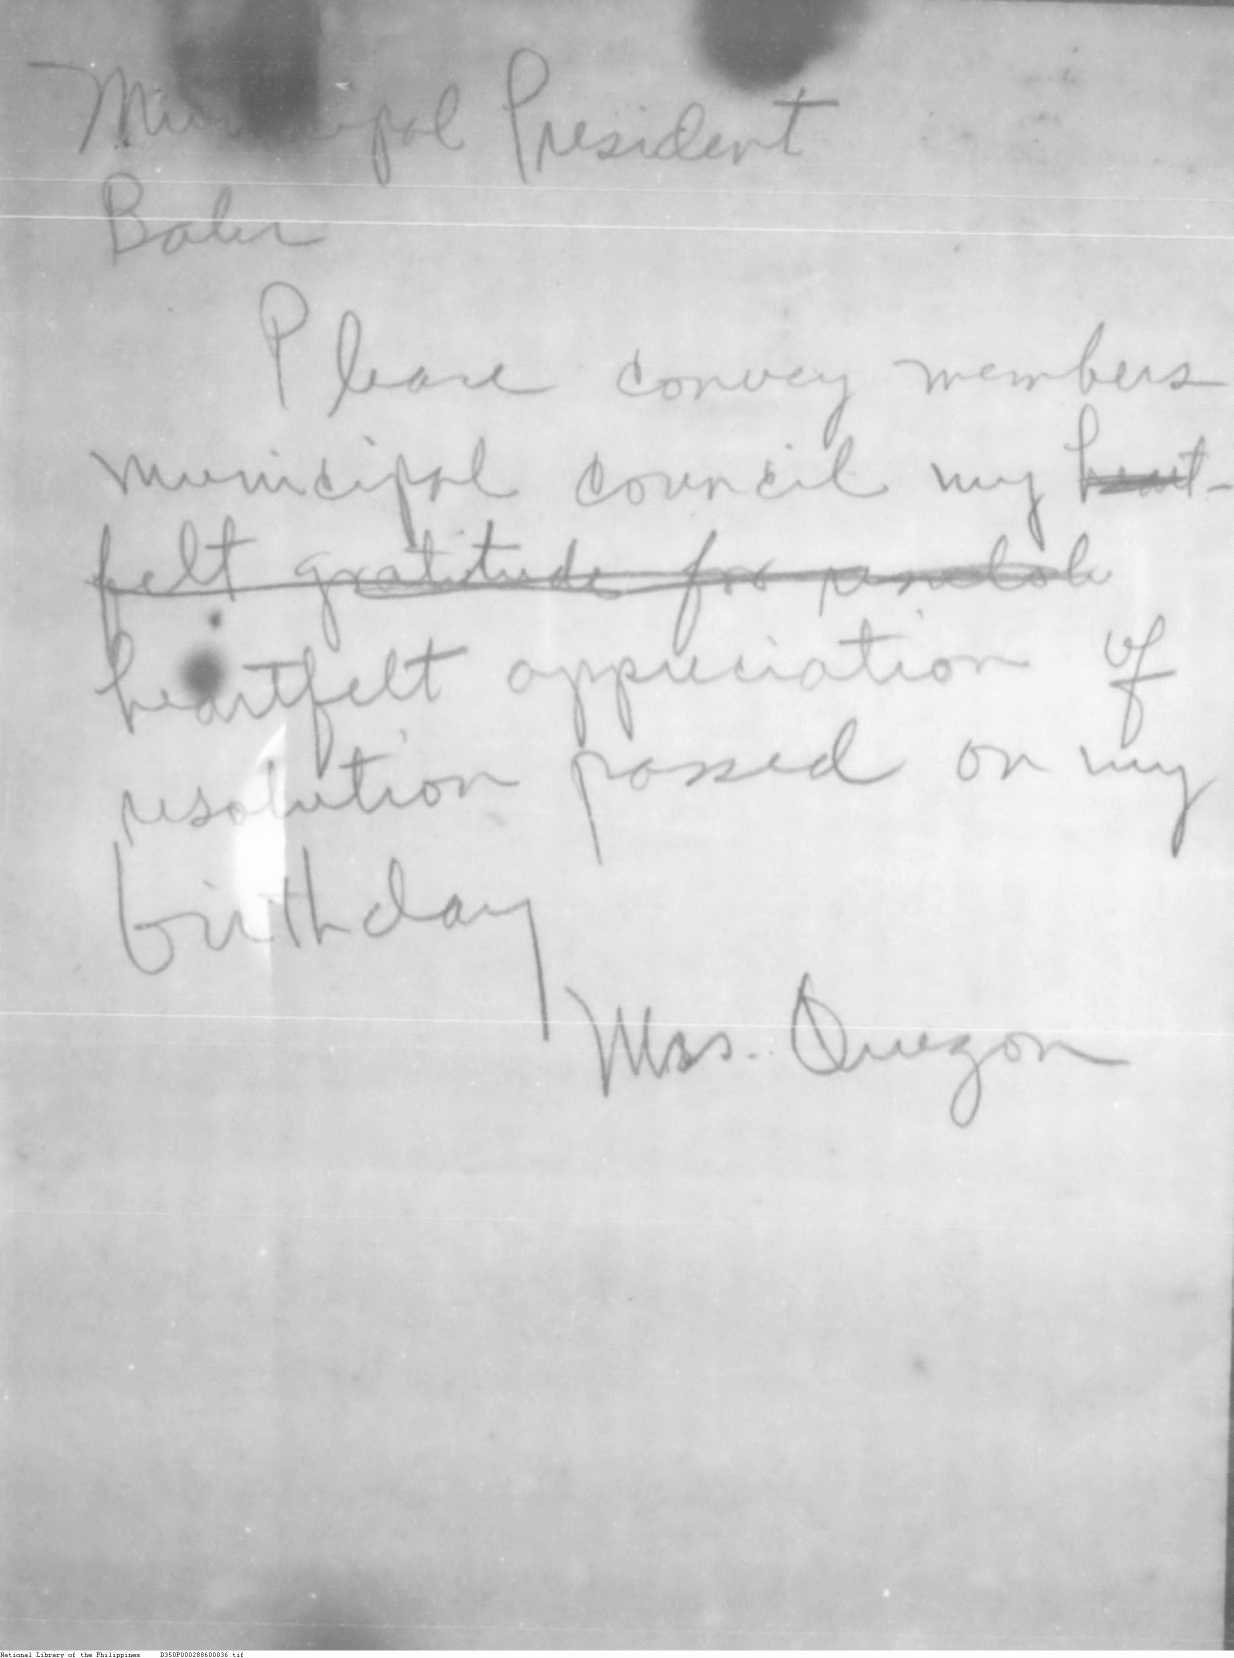 Municipal President
Baler
Please convey members
municipal council my heart-
felt gratitude for
heartfelt appreciation of
resolution passed on my
birthday
Mrs. Quezon
National Library of the Philippines D350P000288600036.tif